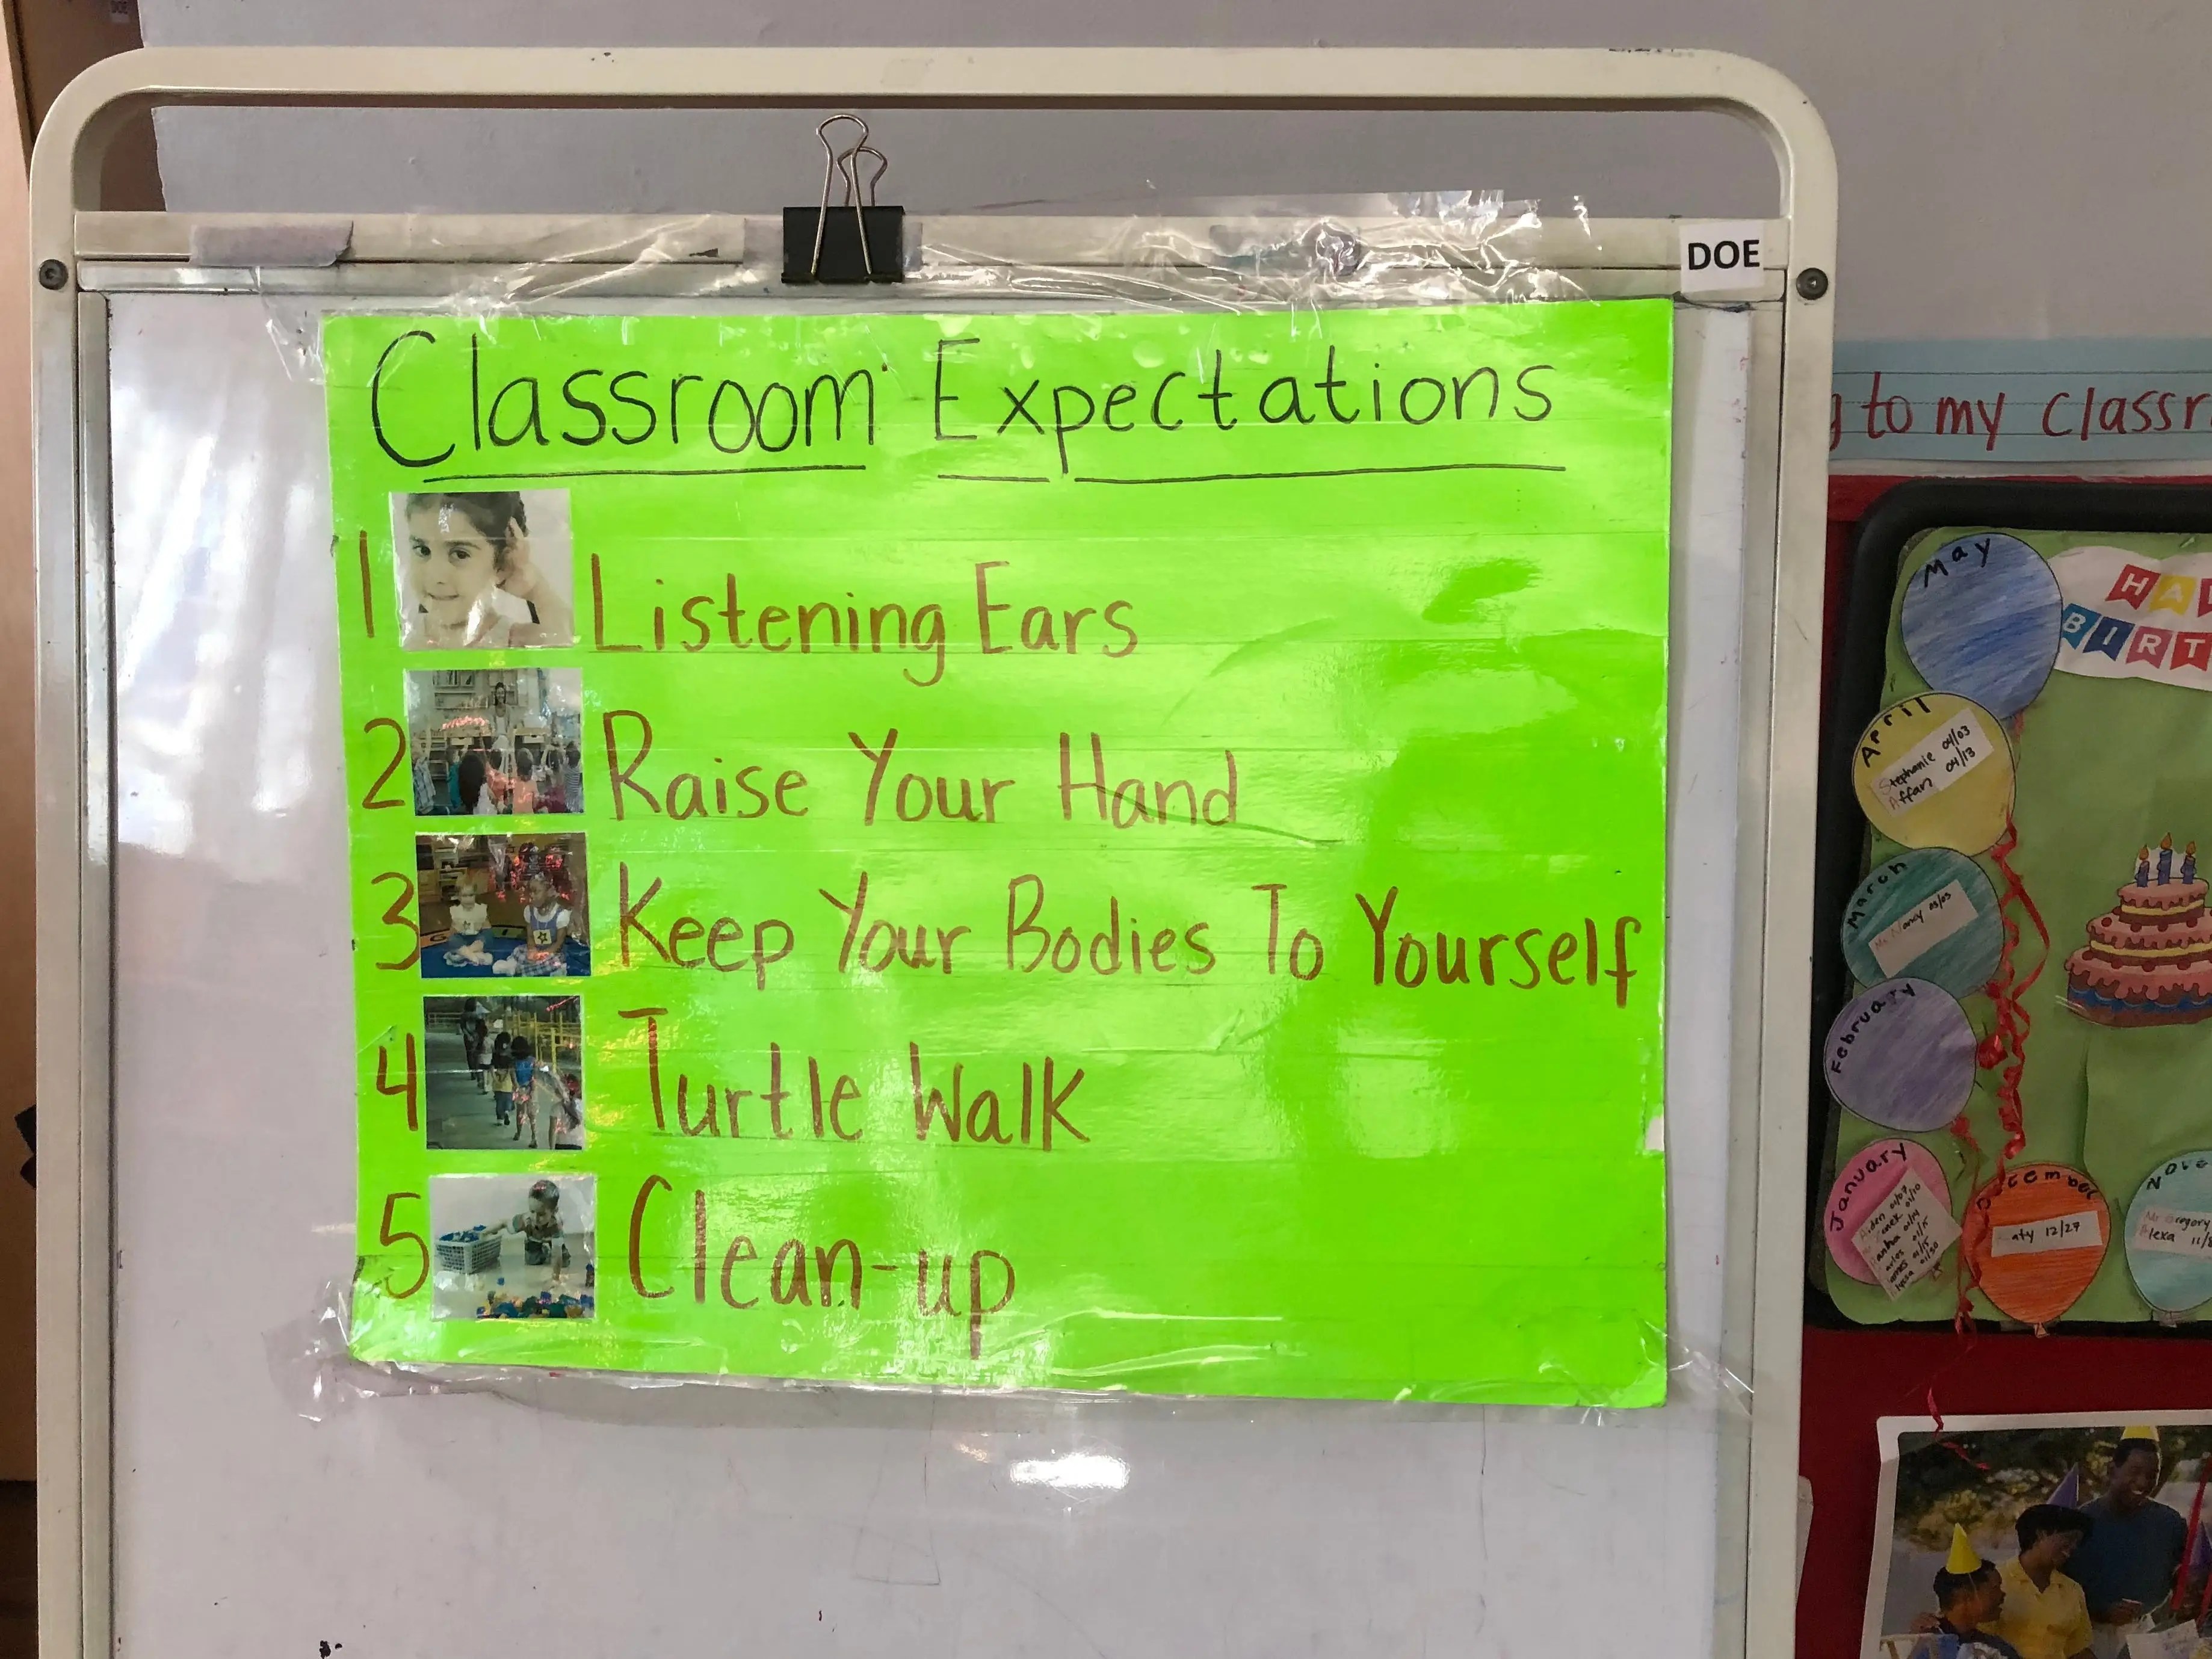 DOE
Classroom Expectations
1 Listening Ears
2 Raise Your Hand
3 Keep Your Bodies To Yourself
4 Turtle Walk
5 Clean-up
to my classr
HA
BIRT
May
April
Stephanie 04/03
Affan 04/13
March
Nancy 03/03
February
January
01/10
December
aty 12/27
Nove
egory
lexa 11/